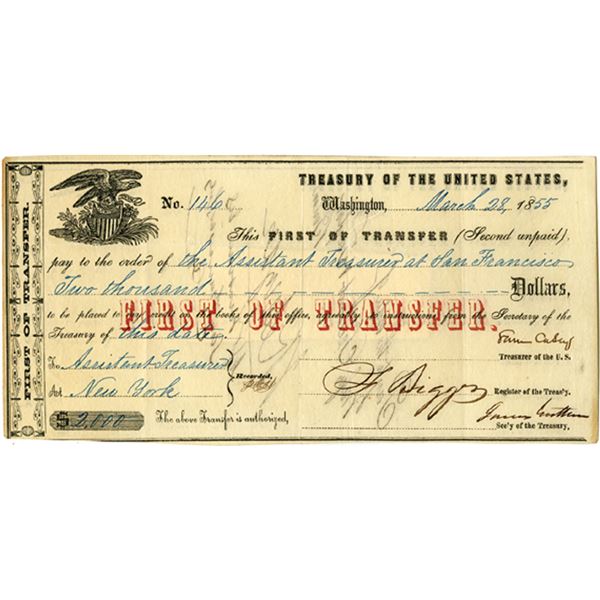 FIRST OF TRANSFER.
TREASURY OF THE UNITED STATES,
No. 146 Washington, March 28, 1855
This FIRST OF TRANSFER (Second unpaid),
pay to the order of the Assistant Treasurer at San Francisco
Two thousand Dollars,
to be placed to my credit on the books of this office, agreeably to instructions from the Secretary of the
FIRST OF TRANSFER.
Treasury of this date.
Treasurer of the U.S.
To Assistant Treasurer
Recorded,
At New York
F. Bigger Register of the Treasy.
$2,000 The above Transfer is authorized,
Sec'y of the Treasury,